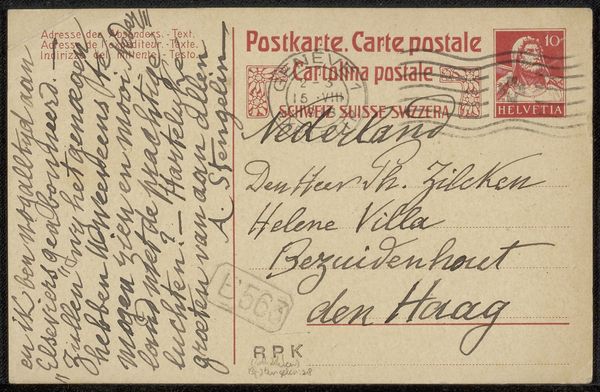 Adresse des Absenders. - Text.
Adresse de l'expéditeur. - Texte.
Indirizzo del mittente. - Testo.
Postkarte. Carte postale
Cartolina postale
SCHWEIZ SUISSE SVIZZERA
10
HELVETIA
GENEVE 1
15. VIII
Nederland
Den Heer Ph. Zilcken
Helene Villa
Bezuidenhout
den Haag
en ik ben nogaltyd van
"Elseviers geabonneerd. -
Zullen wy het genoegen
hebben U
mogen zien en mooi
land met de prachtige
luchten? - Hartelyke
groeten van aan allen
A. Stengelin
E 563
RPK